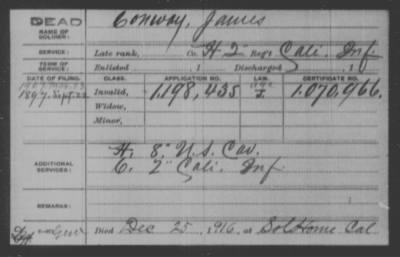 DEAD
NAME OF SOLDIER: Conway, James
SERVICE: Late rank, Co. H. 2" Reg't Cali. Inf.
TERM OF SERVICE: Enlisted , 1 Discharged , 1
DATE OF FILING. CLASS. APPLICATION NO. LAW. CERTIFICATE NO.
1897 Sept. 22 Invalid, 1,198,435 1,070,966.
Widow,
Minor,
H. 8" U.S. Cav.
ADDITIONAL SERVICES: C. 2" Cali. Inf
REMARKS:
Died Dec 25, 1916, at Sol Home Cal